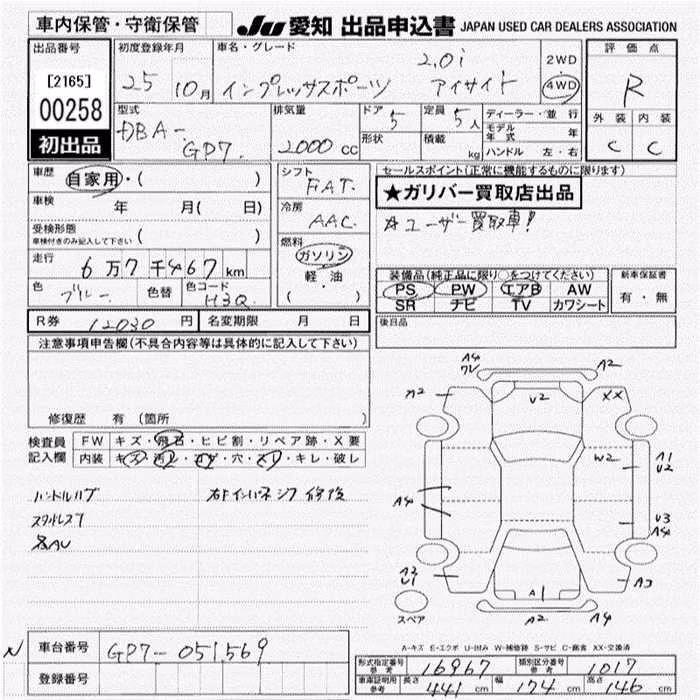 車内保管・守衛保管
JU 愛知 出品申込書 JAPAN USED CAR DEALERS ASSOCIATION
出品番号
[2165]
00258
初出品
初度登録年月
25 10月
車名・グレード
2.0i
インプレッサスポーツ アイサイト
2WD
4WD
評価点
R
外装 内装
C C
型式
DBA-
GP7.
排気量
2000 cc
ドア 5
形状
定員 5人
積載 kg
ディーラー・並行
モデル年式 年
ハンドル 左・右
車歴
自家用・( )
車検 年 月( 日)
受検形態
車検付きのみ記入して下さい ( )
走行
6万7千467km
色 ブルー 色替 色コード H3Q
シフト
FAT.
冷房
AAC.
燃料
ガソリン
軽油
( )
セールスポイント(正常に機能するものに限ります)
★ガリバー買取店出品
☆ユーザー買取車!
装備品(純正品に限り○をつけてください)
PS PW エアB AW
SR ナビ TV カワシート
新車保証書
有・無
R券 12030 円 名変更期限 月 日
後日品
注意事項申告欄(不具合内容等は具体的に記入して下さい)
修復歴 有 (箇所 )
検査員
記入欄
FW キズ・飛石・ヒビ割・リペア跡・X要
内装 キズ・汚レ・コゲ・穴・スレ・キレ・破レ
ハンドルハゲ
スタッドレス
右Fインパネ
A4
A2
A2
XX
V2
W2
A1
U2
A4
U3
A4
A2
U1
A3
A1
A2
A4
スペア
A-キズ E-エクボ U-凹み W-補修跡 S-サビ C-腐食 XX-交換済
N
車台番号 GP7-051569
登録番号
形式指定番号 参考 16967 類別区分番号 参考 1017
車庫証明用 参考 長さ 441 cm 幅 174 cm 高さ 146 cm